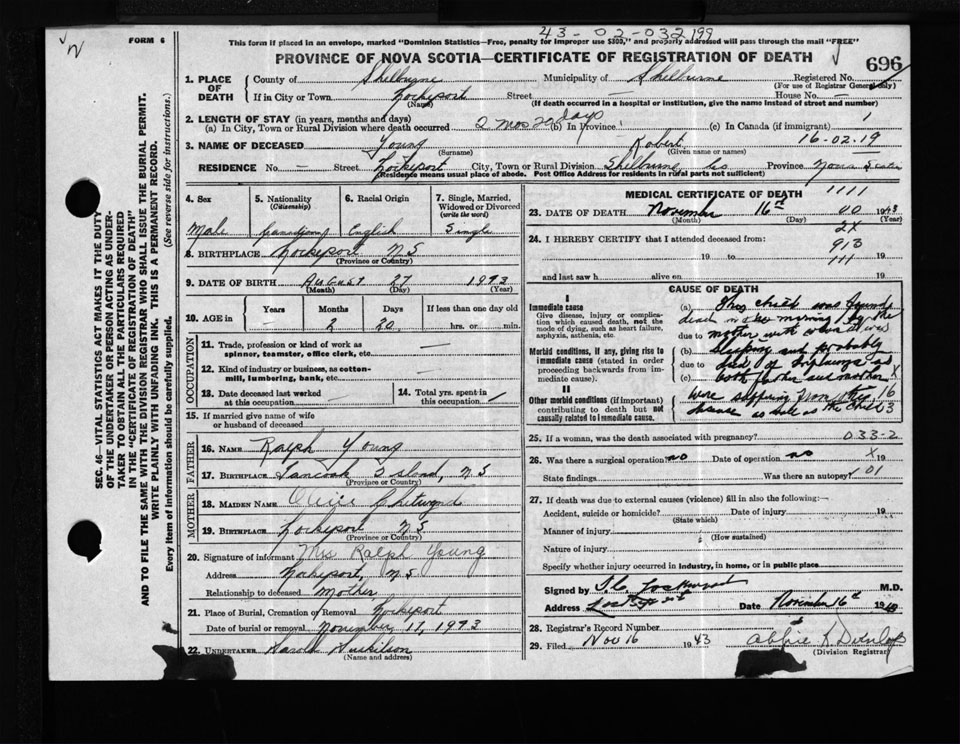 43-02-032199
FORM 6
This form if placed in an envelope, marked "Dominion Statistics—Free, penalty for improper use $300," and properly addressed will pass through the mail "FREE"
PROVINCE OF NOVA SCOTIA—CERTIFICATE OF REGISTRATION OF DEATH
696
1. PLACE OF DEATH
County of Shelburne Municipality of Shelburne Registered No.
(For use of Registrar General only)
If in City or Town Lockeport Street — House No. —
(Name) (If death occurred in a hospital or institution, give the name instead of street and number)
2. LENGTH OF STAY (in years, months and days)
(a) In City, Town or Rural Division where death occurred 2 mos 20 days (b) In Province (c) In Canada (if immigrant) 1
3. NAME OF DECEASED Young Robert 16-02.19
(Surname) (Given name or names)
RESIDENCE No. — Street Lockeport City, Town or Rural Division Shelburne Co Province Nova Scotia
(Residence means usual place of abode. Post Office Address for residents in rural parts not sufficient)
SEC. 46—VITAL STATISTICS ACT MAKES IT THE DUTY
OF THE UNDERTAKER OR PERSON ACTING AS UNDERTAKER TO OBTAIN ALL THE PARTICULARS REQUIRED
IN THE "CERTIFICATE OF REGISTRATION OF DEATH"
AND TO FILE THE SAME WITH THE DIVISION REGISTRAR WHO SHALL ISSUE THE BURIAL PERMIT.
WRITE PLAINLY WITH UNFADING INK. THIS IS A PERMANENT RECORD.
Every item of information should be carefully supplied. (See reverse side for instructions.)
4. Sex 5. Nationality (Citizenship) 6. Racial Origin 7. Single, Married, Widowed or Divorced (write the word)
Male Canadian English Single
8. BIRTHPLACE Lockeport N S
(Province or Country)
9. DATE OF BIRTH August 27 1943
(Month) (Day) (Year)
10. AGE in Years Months Days If less than one day old
— 2 20 hrs. or min.
OCCUPATION
11. Trade, profession or kind of work as spinner, teamster, office clerk, etc. —
12. Kind of industry or business, as cotton-mill, lumbering, bank, etc. —
13. Date deceased last worked at this occupation —
14. Total yrs. spent in this occupation
15. If married give name of wife or husband of deceased
FATHER
16. NAME Ralph Young
17. BIRTHPLACE Tancook Island, N S
(Province or Country)
MOTHER
18. MAIDEN NAME Chetwynd
19. BIRTHPLACE Lockeport N S
(Province or Country)
20. Signature of informant Mrs Ralph Young
Address Lockeport, N S
Relationship to deceased Mother
21. Place of Burial, Cremation or Removal Lockeport
Date of burial or removal November 17, 1943
22. UNDERTAKER Harold Huskilson
(Name and address)
MEDICAL CERTIFICATE OF DEATH 1111
23. DATE OF DEATH November 16th 40 1943
(Month) (Day) (Year)
2X
24. I HEREBY CERTIFY that I attended deceased from:
913
19 to 111 19
and last saw h alive on 19
CAUSE OF DEATH
I
Immediate cause
Give disease, injury or complication which caused death, not the mode of dying, such as heart failure, asphyxia, asthenia, etc.
Morbid conditions, if any, giving rise to immediate cause (stated in order proceeding backwards from immediate cause).
II
Other morbid conditions (if important) contributing to death but not causally related to immediate cause.
(a) This child was found
dead in the morning by the
due to mother with whom it was
(b) sleeping and probably
due to died of as
(c) both father and mother X
were suffering from this 16
disease as well as the child 3
25. If a woman, was the death associated with pregnancy? 033-2
26. Was there a surgical operation? no Date of operation no X 19
State findings Was there an autopsy? 01
27. If death was due to external causes (violence) fill in also the following:—
Accident, suicide or homicide? Date of injury 19
(State which)
Manner of injury
(How sustained)
Nature of injury
Specify whether injury occurred in industry, in home, or in public place
Signed by Lockwood M.D.
Address Lockeport Date November 16th 1943
28. Registrar's Record Number
29. Filed Nov 16 1943 Abbie K Dunlop
(Division Registrar)